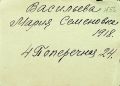 Васильева
Мария Семеновна
1918.
4 Поперечная 24.